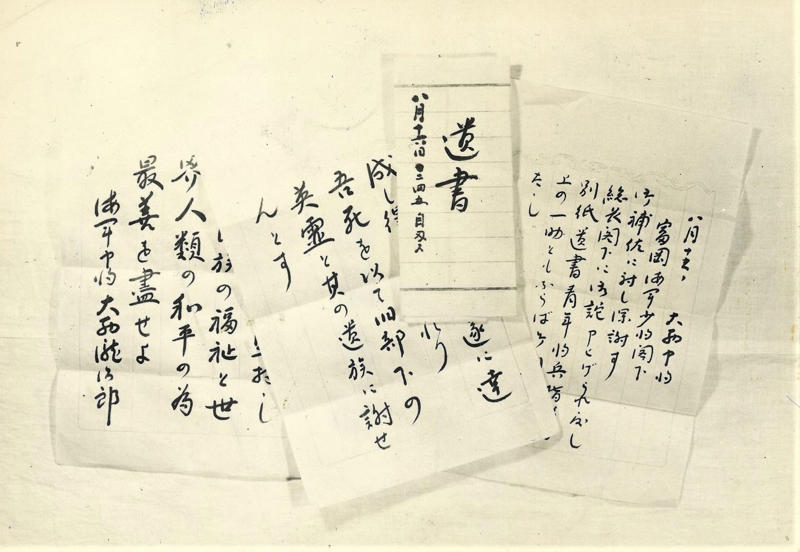 大西中将
富岡海軍少将閣下
御補佐に対し深謝す
総長閣下に御詫申上げられたし
別紙遺書青年将兵指
上の一助ともならば
たし
遺書
八月十六日
遂に達
成し得
吾死を以て旧部下の
英霊と其の遺族に謝せ
んとす
族の福祉と世
界人類の和平の為
最善を盡せよ
海軍中将大西瀧治郎